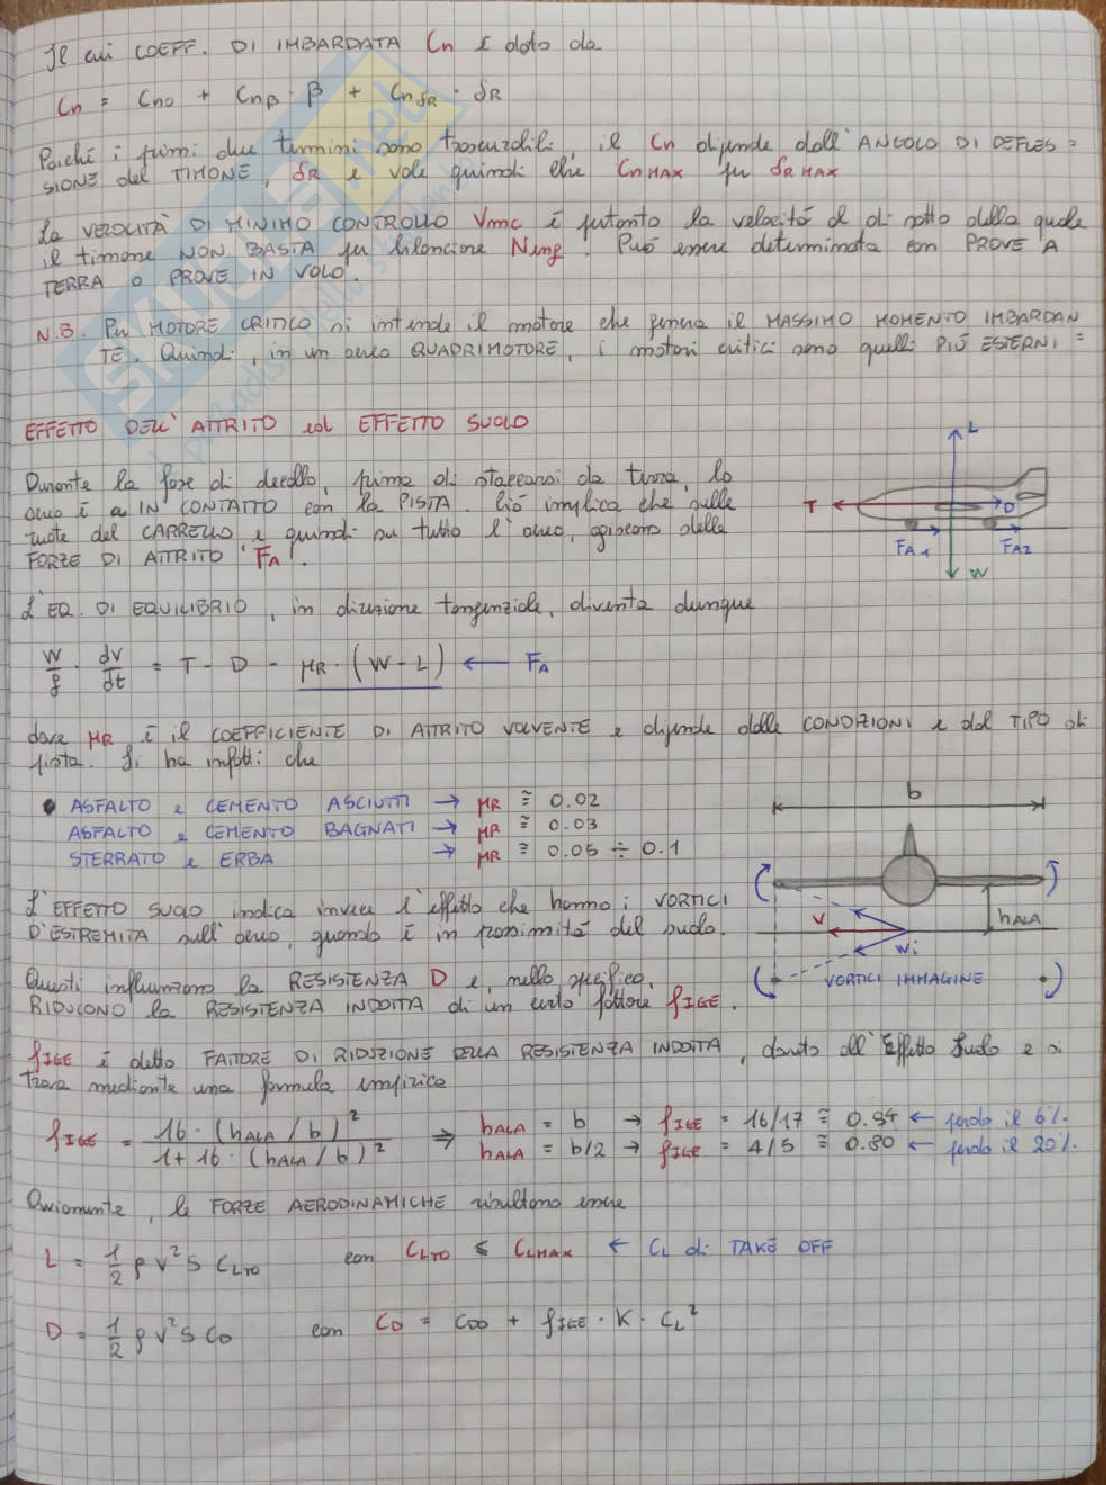 Il cui COEFF. DI IMBARDATA Cn è dato da
Cn = Cn0 + Cnβ · β + CnδR · δR
Poiché i primi due termini sono trascurabili, il Cn dipende dall'ANGOLO DI DEFLES=
SIONE del TIMONE, δR e vale quindi che CnMAX per δR MAX
La VELOCITÀ DI MINIMO CONTROLLO Vmc è pertanto la velocità al di sotto della quale
il timone NON BASTA per bilanciare Neng. Può essere determinata con PROVE A
TERRA O PROVE IN VOLO.
N.B. Per MOTORE CRITICO si intende il motore che genera il MASSIMO MOMENTO IMBARDAN
TE. Quindi, in un aereo QUADRIMOTORE, i motori critici sono quelli PIÙ ESTERNI =
EFFETTO DELL'ATTRITO ed EFFETTO SUOLO
Durante la fase di decollo, prima di staccarsi da terra, lo
aereo è a IN CONTATTO con la PISTA. Ciò implica che sulle
ruote del CARRELLO e quindi su tutto l'aereo, agiscono delle
FORZE DI ATTRITO FA.
L
T
D
FA1
FA2
W
L'EQ. DI EQUILIBRIO, in direzione tangenziale, diventa dunque
W/g · dV/dt = T - D - μR · (W - L) ← FA
dove μR è il COEFFICIENTE DI ATTRITO VOLVENTE e dipende dalle CONDIZIONI e dal TIPO di
pista. Si ha infatti che
• ASFALTO e CEMENTO ASCIUTTI → μR ≅ 0.02
ASFALTO e CEMENTO BAGNATI → μR ≅ 0.03
STERRATO e ERBA → μR ≅ 0.05 ÷ 0.1
b
hALA
V
wi
VORTICI IMMAGINE
L'EFFETTO SUOLO indica invece l'effetto che hanno i VORTICI
D'ESTREMITÀ sull'aereo, quando è in prossimità del suolo.
Questi influenzano la RESISTENZA D e, nello specifico,
RIDUCONO la RESISTENZA INDOTTA di un certo fattore fIGE.
fIGE è detto FATTORE DI RIDUZIONE DELLA RESISTENZA INDOTTA, dovuto all'Effetto Suolo e si
trova mediante una formula empirica
fIGE = 16 · (hALA / b)² / 1 + 16 · (hALA / b)² ⇒ hALA = b → fIGE = 16/17 ≅ 0.94 ← perdo il 6%
hALA = b/2 → fIGE = 4/5 ≅ 0.80 ← perdo il 20%
Ovviamente, le FORZE AERODINAMICHE risultano essere
L = 1/2 ρ V² S CLTO con CLTO ≤ CLMAX ← CL di TAKE OFF
D = 1/2 ρ V² S CD con CD = CD0 + fIGE · K · CL²